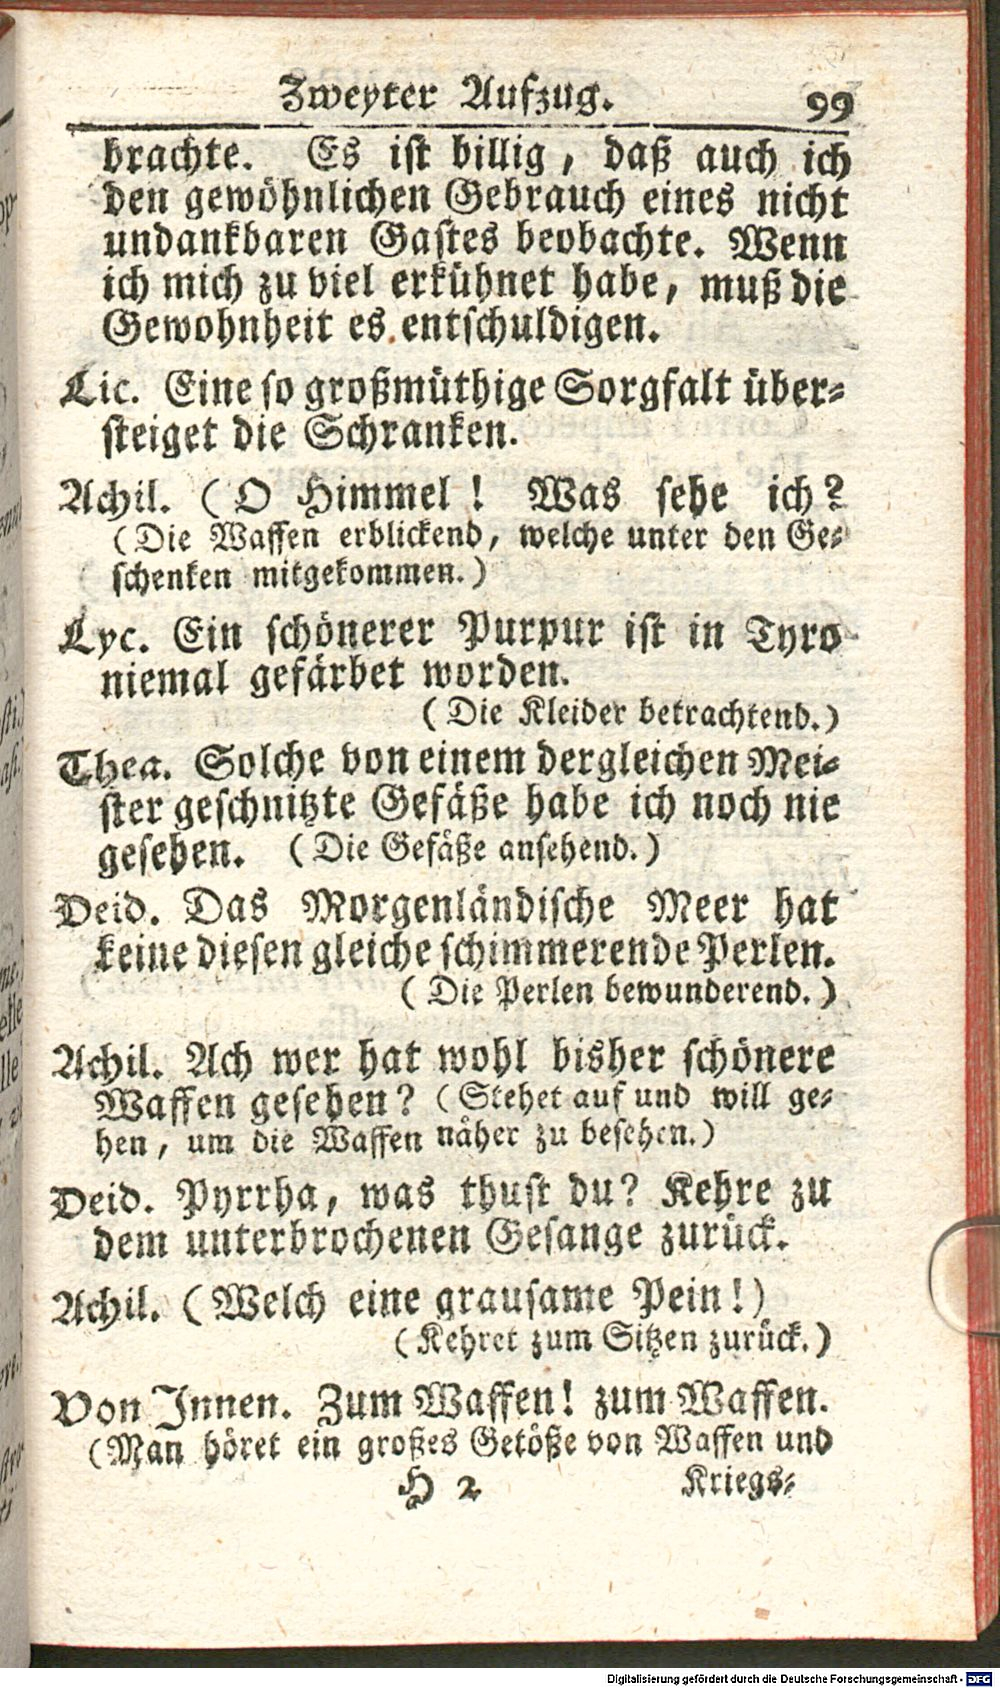 Zweyter Aufzug. 99
brachte. Es ist billig, daß auch ich
den gewöhnlichen Gebrauch eines nicht
undankbaren Gastes beobachte. Wenn
ich mich zu viel erkühnet habe, muß die
Gewohnheit es entschuldigen.
Lic. Eine so großmüthige Sorgfalt über-
steiget die Schranken.
Achil. (O Himmel! Was sehe ich?
(Die Waffen erblickend, welche unter den Ge-
schenken mitgekommen.)
Lyc. Ein schönerer Purpur ist in Tyro
niemal gefärbet worden.
(Die Kleider betrachtend.)
Thea. Solche von einem dergleichen Mei-
ster geschnitzte Gefäße habe ich noch nie
gesehen. (Die Gefäße ansehend.)
Deid. Das Morgenländische Meer hat
keine diesen gleiche schimmerende Perlen.
(Die Perlen bewunderend.)
Achil. Ach wer hat wohl bisher schönere
Waffen gesehen? (Stehet auf und will ge-
hen, um die Waffen näher zu besehen.)
Deid. Pyrrha, was thust du? Kehre zu
dem unterbrochenen Gesange zurück.
Achil. (Welch eine grausame Pein!)
(Kehret zum Sitzen zurück.)
Von Innen. Zum Waffen! zum Waffen.
(Man höret ein großes Getöße von Waffen und
H 2 Kriegs-
Digitalisierung gefördert durch die Deutsche Forschungsgemeinschaft - DFG